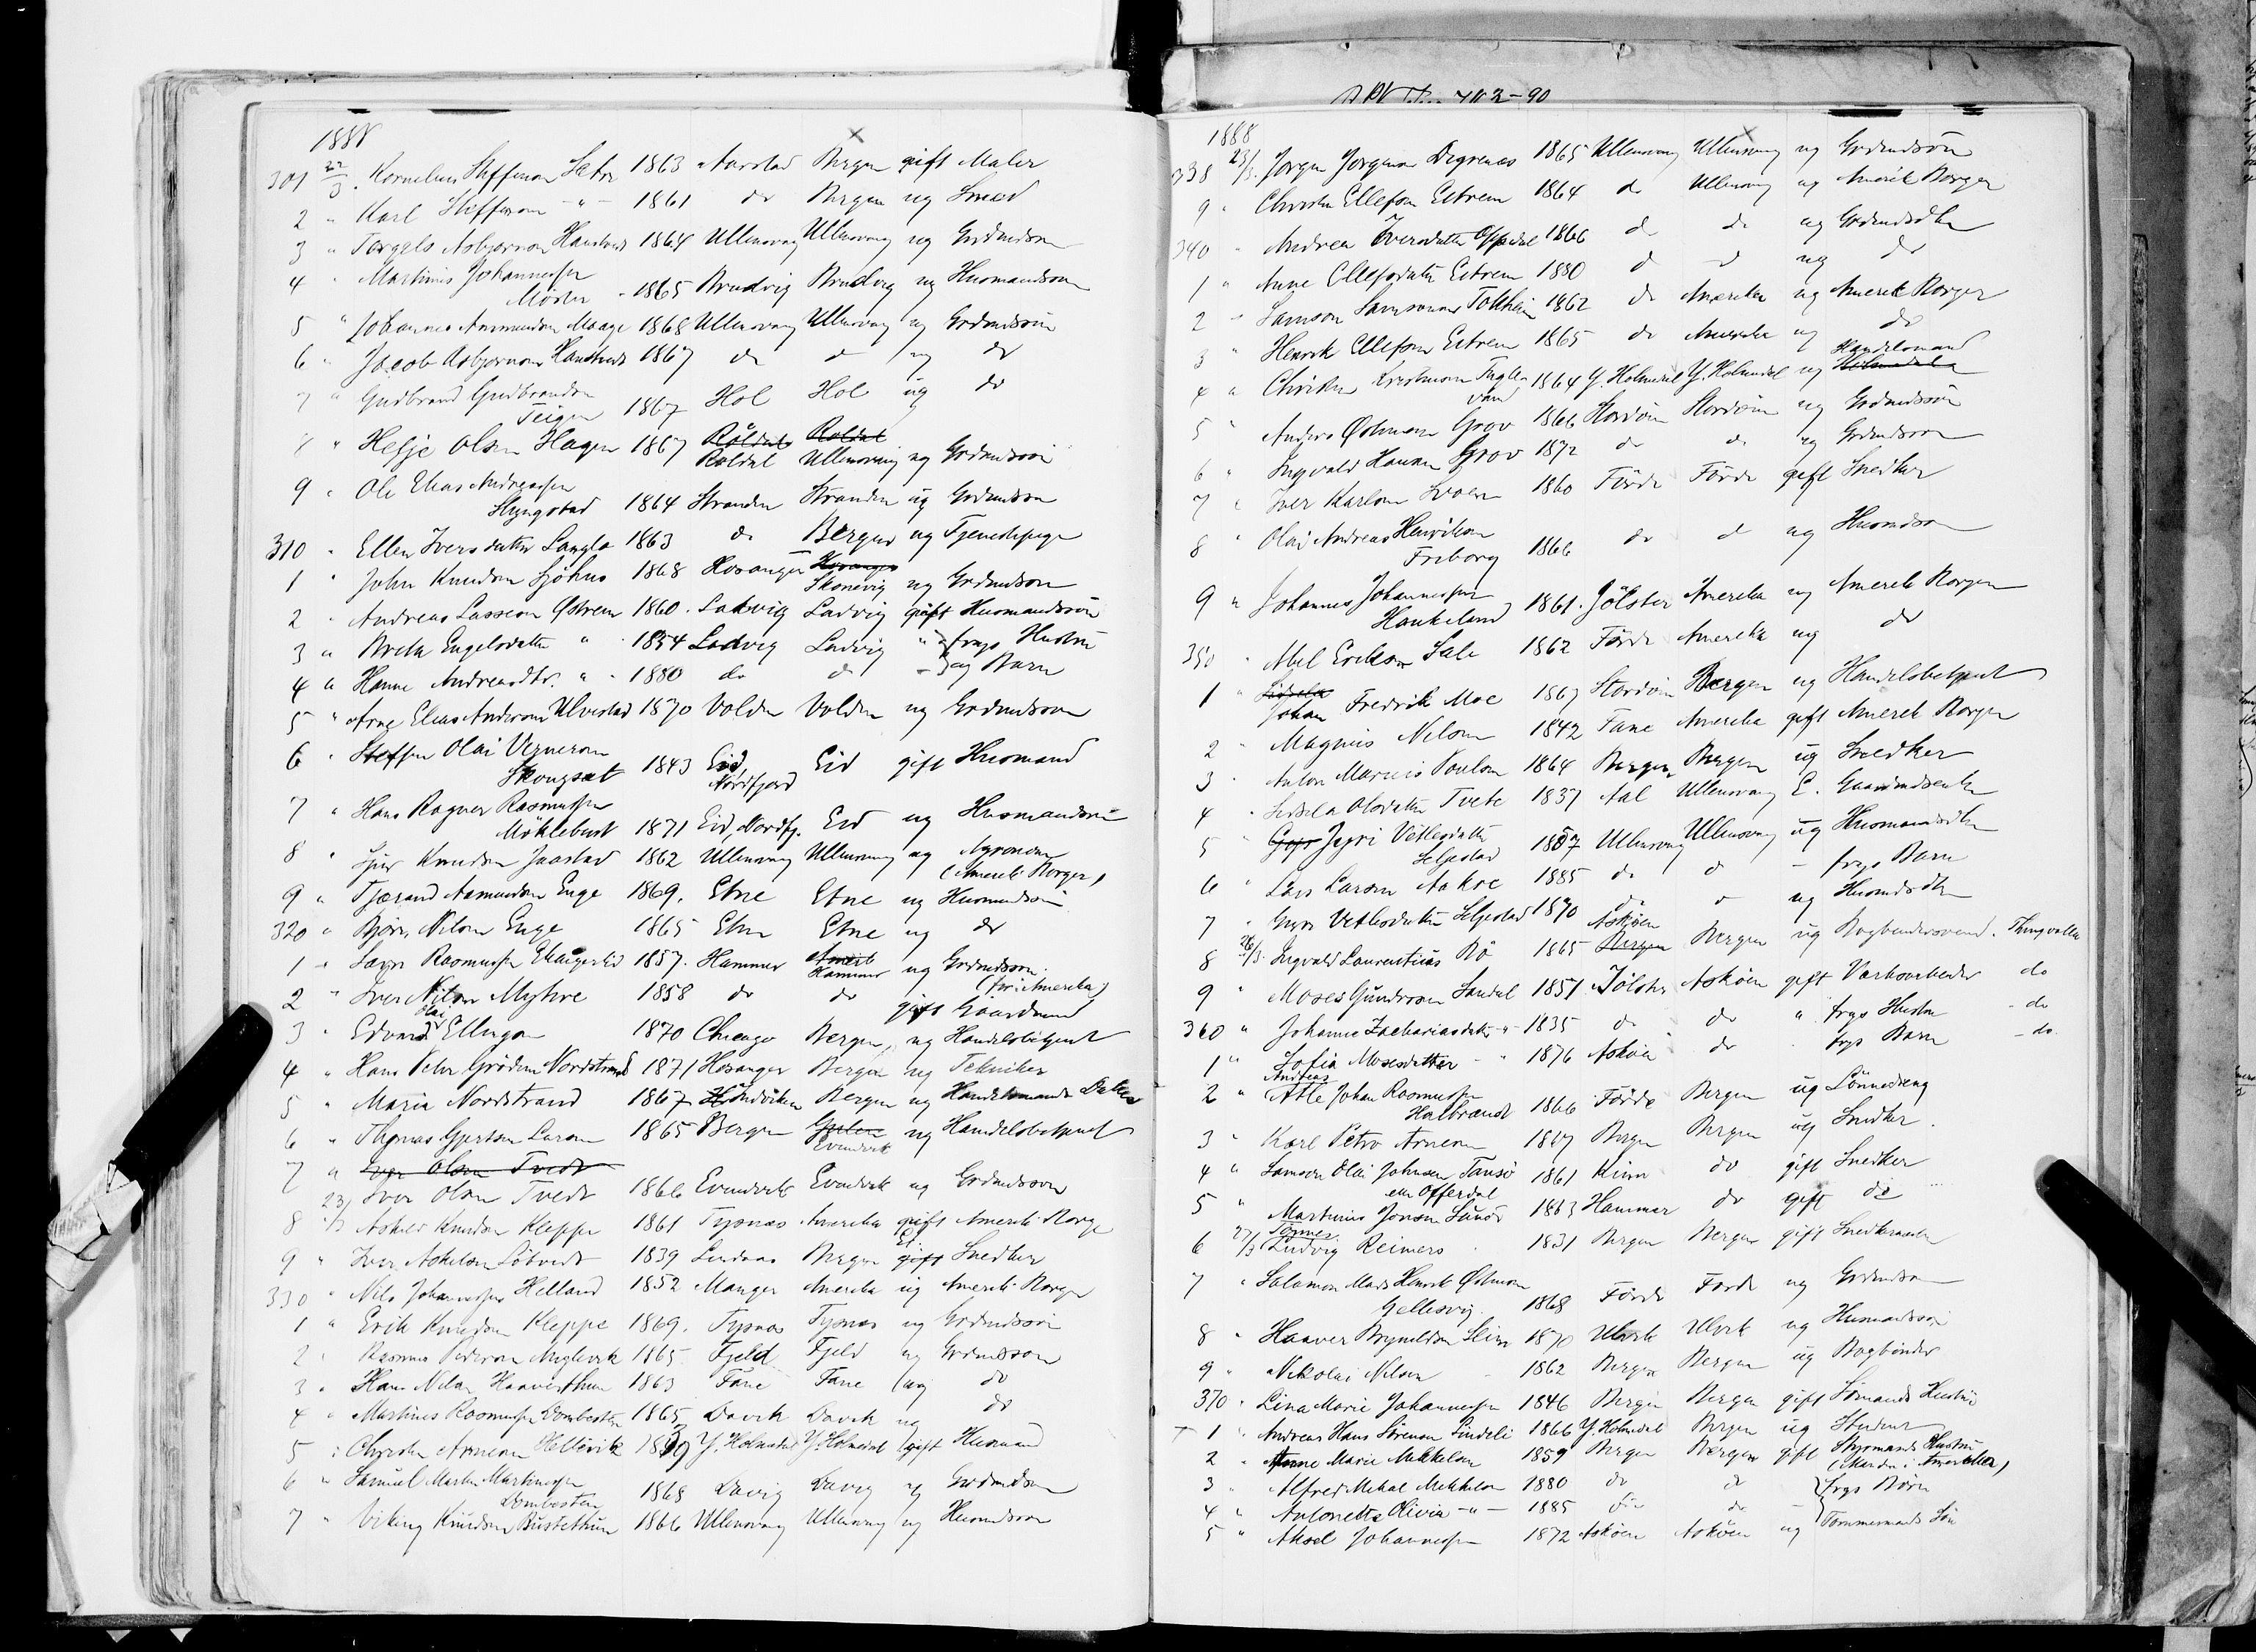 1888
301 22/3 Kornelius Steffenson Sætre 1863 Aarstad Bergen gift Maler
2 " Karl Steffenson - " - 1861 do Bergen ug Smed
3 " Torgels Asbjørnson 1864 Ullensvang Ullensvang ug Grdmdsøn
4 " Martinus Johannessen
Møster 1865 Bruvig Bruvig ug Husmandsøn
5 " Johannes Aamundsen Maage 1868 Ullensvang Ullensvang ug Grdmdsøn
6 " Jacob Asbjørnson 1867 do do ug do
7 " Gudbrand Gudbrandson
Teigen 1867 Hol Hol ug do
8 " Helje Olsen Hagen 1867 Røldal Røldal
Røldal Ullensvang ug Grdmdsøn
9 " Ole Elias Andreassen
1864 Stranden Stranden ug Grdmdsøn
310 " Ellen Iversdatter Langlo 1863 do Bergen ug Tjenestepige
1 " John Knudsen Sjøhus 1868 Hosanger Hosanger
Skonevig ug Grdmdsøn
2 " Andreas Lasseson Østrem 1860 Ladvig Ladvig gift Husmandssøn
3 " Brita Engelsdatter " 1854 Ladvig Ladvig " frags Hustru
4 " Hanne Andreasdtr. " 1880 do do - ug Barn
5 " Arne Elias Andersen Ulvestad 1870 Volden Volden ug Grdmdsøn
6 " Steffen Olai Vernerson
Skougsæt 1843 Eid, Nordfjord Eid gift Husmand
7 " Hans Ragner Rasmussen
Myklebust 1871 Eid, Nordfj. Eid ug Husmandssøn
8 " Sjur Knudsen Jaastad 1862 Ullensvang Ullensvang ug Agronom
(Amerik. Borger)
9 " Tjerand Aamundsen Enge 1869. Etne Etne ug Husmandsøn
320 " Bjørn Nilsen Enge 1865 Etne Etne ug do
1 " Rasmussen 1857. Hammer Amerik
Hammer ug Grdmdsøn
(før i Amerika)
2 " Iver Nilsen Myhre 1858 do do gift Gaardmand
3 " Edvard Olai Ellingsen 1870 Chicago Bergen ug Handelsbetjent
4 " Hans Peter Grøden Nordstrand 1871 Hosanger Bergen ug Tekniker
5 " Maria Nordstrand 1867 Bergen ug Handelsmands Datter
6 " Thomas Gjertsen Larsen 1865 Bergen Gulen
Evindvik ug Handelsbetjent
7 " Iver Olsen Tvedt
Iver Olsen Tvedt 1866 Evindvik Evindvik ug Grdmdsøn
8 23/3 Askild Knudsen Kleppe 1861 Tysnæs Amerika gift Amerik Borger
9 " Iver Askelsen Løtvedt 1839 Lindaas Bergen gift Snedker
330 " Nils Johannessen Helland 1852 Manger Amerika ug Amerik Borger
1 " Erik Knudsen Kleppe 1869. Tysnæs Tysnæs ug Grdmdsøn
2 " Rasmus Pederson 1865 Fjeld Fjeld ug Grdmdsøn
3 " Hans Nilsen 1863 Fane Fane ug do
4 " Martinus Rasmussen Dombesten 1865 Davik Davik ug do
5 " Christen Arneson Hellevik 1859 Y. Holmedal Y. Holmedal gift Husmand
6 " Samuel Martin Martinussen
Dombesten 1868 Davig Davig ug Grdmdsøn
7 " Viking Knudsen Bustethun 1866 Ullensvang Ullensvang ug Husmdsøn
1888
338 23/3 Jørgen Jørgenson Degrenæs 1865 Ullensvang Ullensvang ug Grdmdsøn
9 " Christen Ellefsen Eitrem 1864 do Ullensvang ug Amerik Borger
340 " Andrea Iversdatter Oppedal 1866 do do ug Grdmdsdtr
1 " Anne Ellefsdatter Eitrem 1880 do do ug do
2 " Samson Samsonson Tokheim 1862 do Amerika ug Amerik Borger
3 " Henrik Ellefsen Eitrem 1865 do Amerika ug do
4 " Christen 1864 Y. Holmedal Y. Holmedal ug Handelsmand
5 " Anders Østensen Grov 1866 Stordøen Stordøen ug Grdmdssøn
6 " Ingvald Hansen Grov 1872 do do ug Grdmdsøn
7 " Iver Karlsen Svoen 1860 Førde Førde gift Snedker
8 " Olai Andreas Henriksen
Friborg 1866 do do ug Husmdsøn
9 " Johannes Johannessen
Haukeland 1861. Jølster Amerika ug Amerik Borger
350 " Abel Eriksen Sale 1862 Førde Amerika ug do
1 " Sidsela
Johan Fredrik Moe 1867 Stordøen Bergen ug Handelsbetjent
2 " Magnus Nilsen 1842 Fane Amerika gift Amerik Borger
3 " Anton Marius Poulsen 1864 Bergen Bergen ug Snedker
4 " Sidsela Olsdatter Tvete 1837 Aal Ullensvang E. Gaardmdsenke
5 " Gyri Jyri Vetlesdatter
Seljestad 1857 Ullensvang Ullensvang ug Husmandsdtr
6 " Lars Larsen Aakre 1885 do do - frags Barn
7 " Guro Vetlesdatter Seljestad 1870 do do ug Husmdsdtr
8 26/3 Ingvald Laurentius Bø 1865 Askøen
Bergen Bergen ug Bogbindersvend. Thingvalla
9 " Moses Gundersen Sandal 1851 Jølster Askøen gift Værksarbeider do
360 " Johanne Zachariasdatter - " - 1835 do do " frags Hustru - do
1 " Sofia Mosesdatter - " 1876 Askøen do - frgs Barn - do
2 " Andreas
Atle Johan Rasmussen
Halbrændt 1866 Førde Bergen ug Lønnedreng
3 " Karl Petro Arneson 1867 Bergen Bergen ug Snedker
4 " Samson Olai Johnsen Tansø 1861 Kinn do gift Snedker
5 " eller Offerdal
Martinus Jonson 1863 Hammer do gift do
6 27/3 Tønnes
Ludvig Reimers 1831 Bergen Bergen gift Snedkermester
7 " Salamon Mads Henrik Østenson
Gellesvig 1868 Førde Førde ug Grdmdsøn
8 " Haaver Brynildsen 1870 Ulvik Ulvik ug Husmandssøn
9 " Nikolai Nilsen 1862 Bergen Bergen ug Bogbinder
370 " Lina Marie Johannessen 1846 Bergen Bergen gift Sømands Hustru
1 " Andreas Hans Sørensen Lindeli 1866 Y. Holmedal Bergen ug Student
2 " Anne Marie Mikkelsen 1859 Bergen Bergen gift Styrmands Hustru
(Manden i Amerika)
3 " Alfred Mikal Mikkelsen 1880 do do frgs Børn
4 " Antonette Olivia - " - 1885 do do
5 " Aksel Johannessen 1872 Askøen Askøen ug Tømmermands Søn